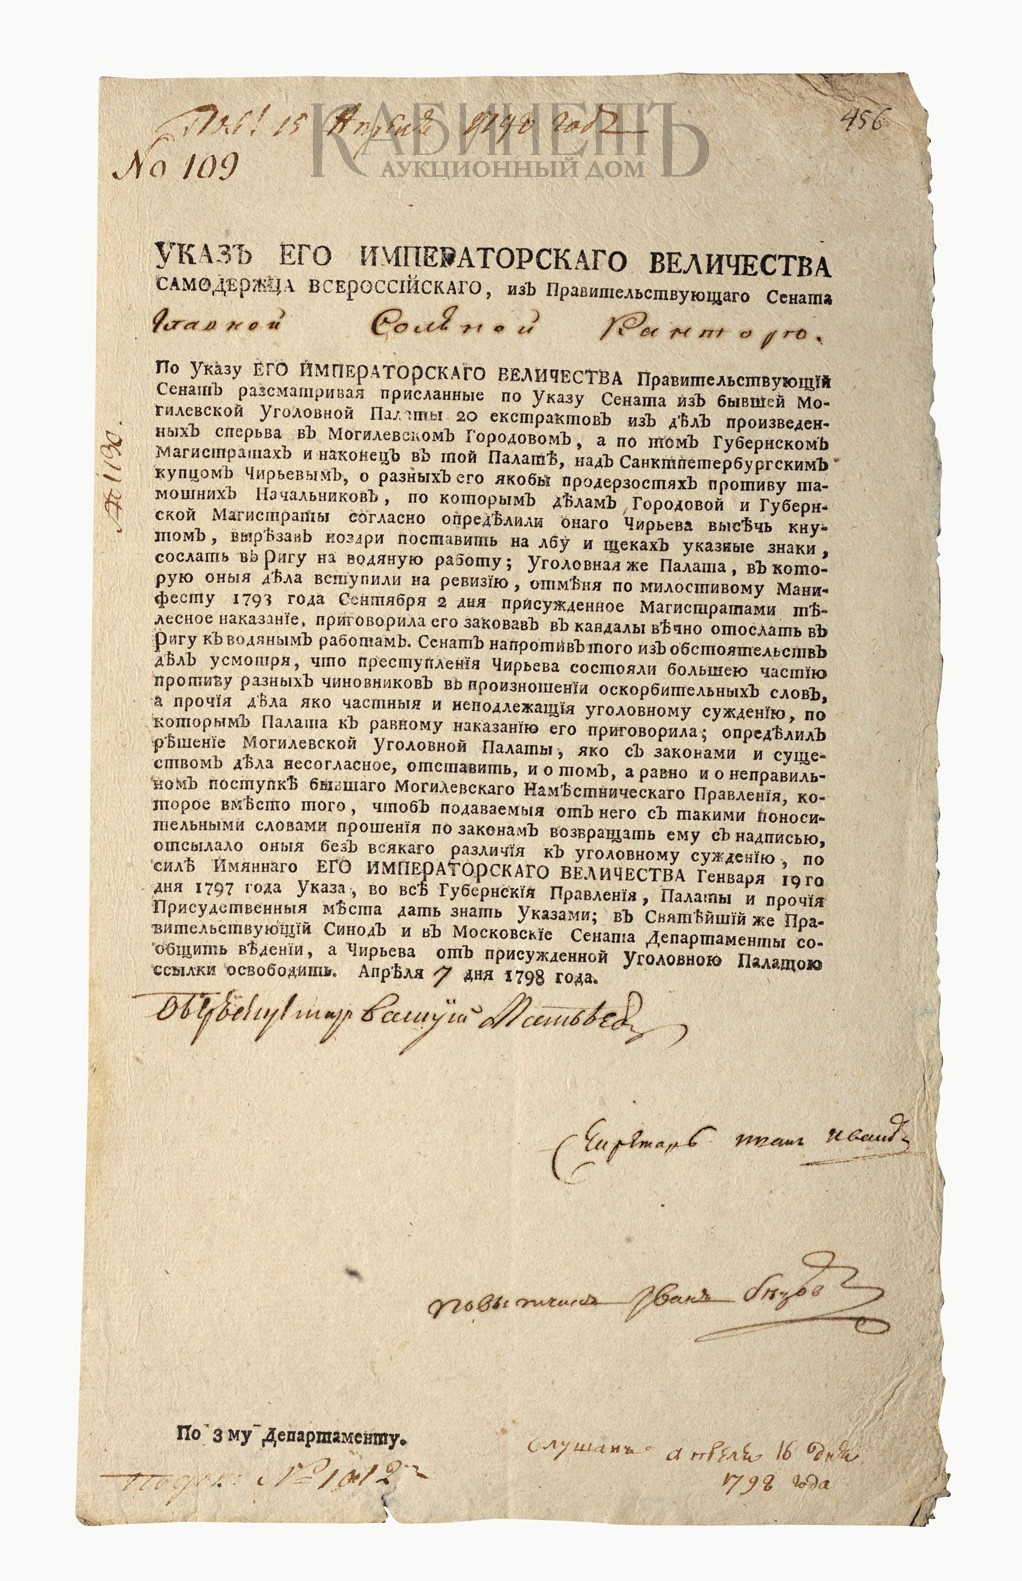 КАБИНЕТЪ
АУКЦИОННЫЙ ДОМ
15 Апреля 1798 года
456
No 109
УКАЗЪ ЕГО ИМПЕРАТОРСКАГО ВЕЛИЧЕСТВА
САМОДЕРЖЦА ВСЕРОССІЙСКАГО, изъ Правительствующаго Сената
Главной Соляной Канторѣ.
По Указу ЕГО ИМПЕРАТОРСКАГО ВЕЛИЧЕСТВА Правительствующій
Сенатъ разсматривая присланные по Указу Сената изъ бывшей Мо-
гилевской Уголовной Палаты 20 екстрактовъ изъ дѣлъ произведен-
ныхъ сперьва въ Могилевскомъ Городовомъ, а по томъ Губернскомъ
Магистратахъ и наконецъ въ той Палатѣ, надъ Санктпетербургскимъ
купцомъ Чирьевымъ, о разныхъ его якобы продерзостяхъ противу та-
мошнихъ Начальниковъ, по которымъ дѣламъ Городовой и Губерн-
ской Магистраты согласно опредѣлили онаго Чирьева высѣчь кну-
томъ, вырѣзавъ ноздри поставить на лбу и щекахъ указные знаки,
сослать въ Ригу на водяную работу; Уголовная же Палата, въ кото-
рую оныя дѣла вступили на ревизію, отмѣня по милостивому Мани-
фесту 1793 года Сентября 2 дня присужденное Магистратами тѣ-
лесное наказаніе, приговорила его заковавъ въ кандалы вѣчно отослать въ
Ригу къ водянымъ работамъ. Сенатъ напротивъ того изъ обстоятельствъ
дѣлъ усмотря, что преступленія Чирьева состояли большею частію
противу разныхъ чиновниковъ въ произношеніи оскорбительныхъ словъ,
а прочія дѣла яко частныя и неподлежащія уголовному сужденію, по
которымъ Палата къ равному наказанію его приговорила; опредѣлилъ
рѣшеніе Могилевской Уголовной Палаты, яко съ законами и суще-
ствомъ дѣла несогласное, отставить, и о томъ, а равно и о неправиль-
номъ поступкѣ бывшаго Могилевскаго Намѣстническаго Правленія, ко-
торое вмѣсто того, чтобъ подаваемыя отъ него съ такими поноси-
тельными словами прошенія по законамъ возвращать ему съ надписью,
отсылало оныя безъ всякаго различія къ уголовному сужденію, по
силѣ Имяннаго ЕГО ИМПЕРАТОРСКАГО ВЕЛИЧЕСТВА Генваря 19 го
дня 1797 года Указа, во всѣ Губернскія Правленія, Палаты и прочія
Присудственныя мѣста дать знать Указами; въ Святѣйшій же Пра-
вительствующій Синодъ и въ Московскіе Сената Департаменты со-
общить вѣденіи, а Чирьева отъ присужденной Уголовною Палатою
ссылки освободить. Апрѣля 7 дня 1798 года.
Секретарь Иванъ
Повытчикъ Иванъ
По 3 му Департаменту.
Слушанъ апреля 16 дня
1798 года